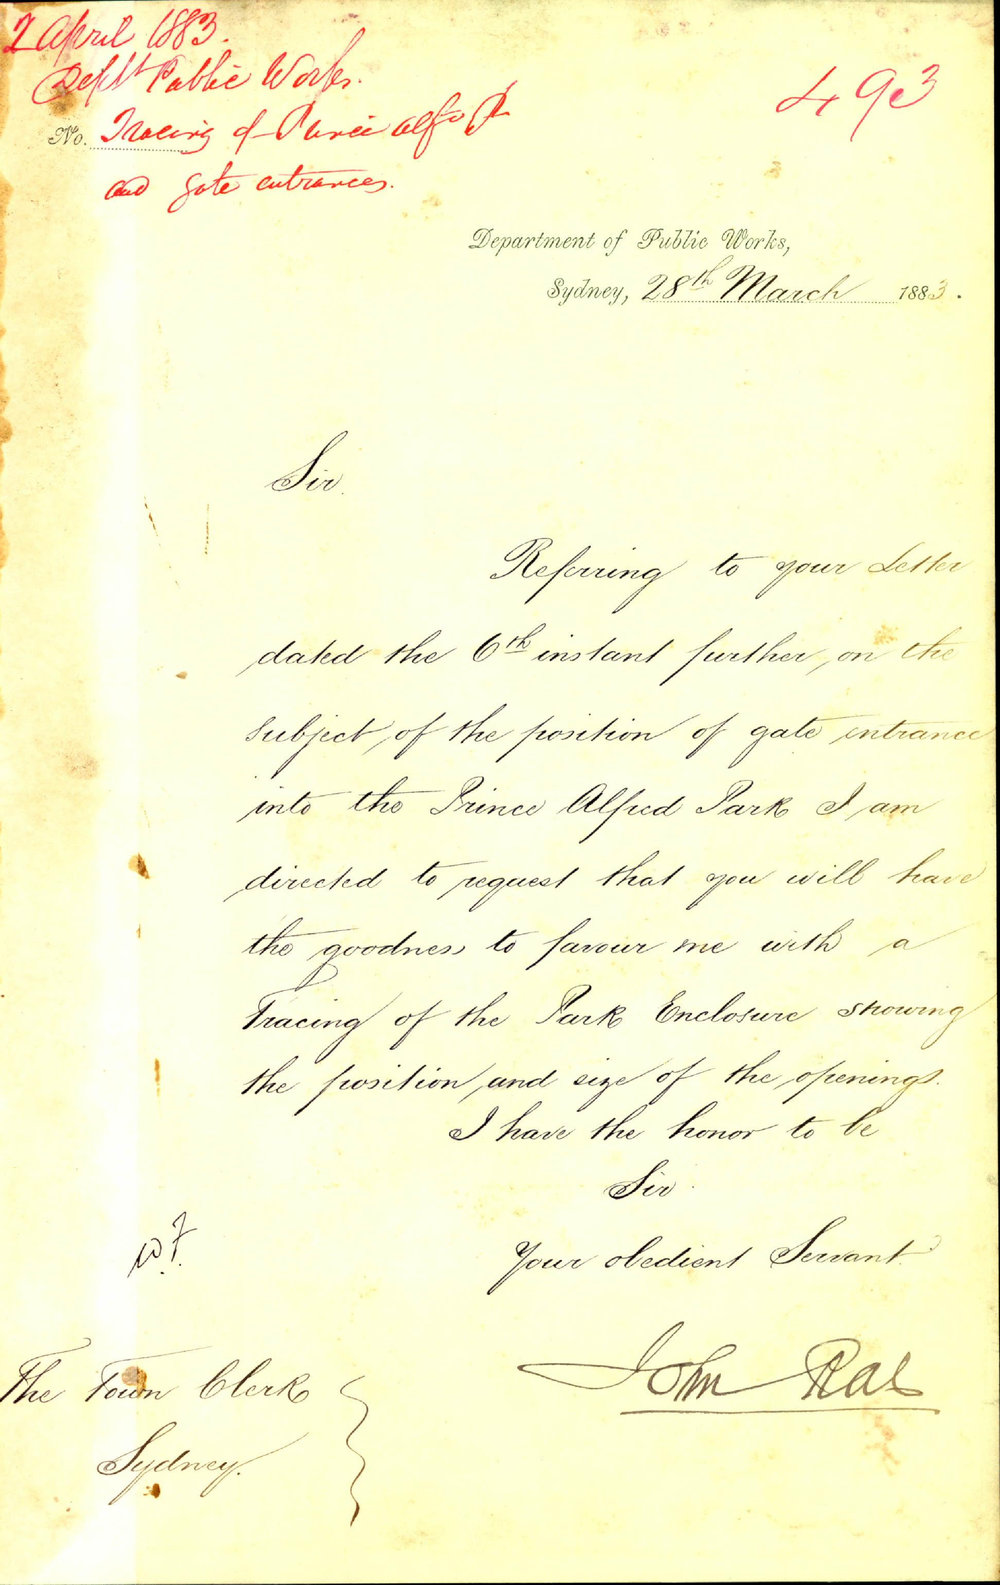 2 April 1883.
Deptt Public Works.
No. Tracing of Prince Alf'd P
and gate entrances.
493
Department of Public Works,
Sydney, 28th March 1883.
Sir
Referring to your Letter
dated the 6th instant further, on the
subject, of the position of gate entrance
into the Prince Alfred Park I am
directed to request that you will have
the goodness to favour me with a
Tracing of the Park Enclosure showing
the position, and size of the openings.
I have the honor to be
Sir
Your obedient Servant
John Rae
The Town Clerk
Sydney.